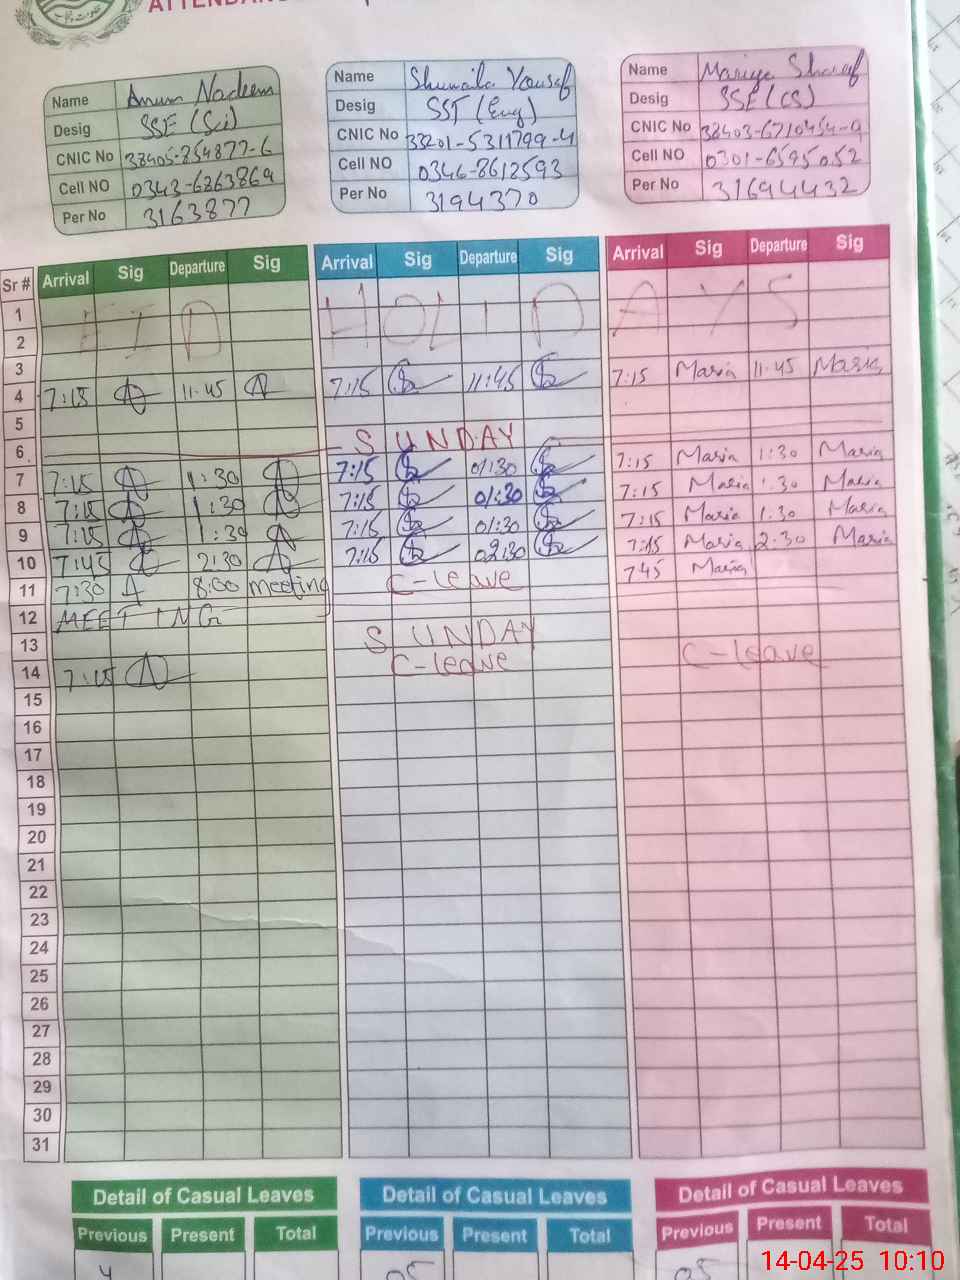 ATTENDANC
Name Anum Nadeem
Desig SSE (Sci)
CNIC No 38405-854877-6
Cell NO 0343-6863869
Per No 3163877
Name Shumaila Yousaf
Desig SST (Eng)
CNIC No 33201-5311799-4
Cell NO 0346-8612593
Per No 3194370
Name Mariya Sharaf
Desig SSE (CS)
CNIC No 38403-6710454-9
Cell NO 0301-6595052
Per No 31694432
Sr # Arrival Sig Departure Sig Arrival Sig Departure Sig Arrival Sig Departure Sig
1 EID HOLIDAYS
2
3
4 7:15 11:45 7:15 11:45 7:15 Maria 11:45 Maria
5
6 SUNDAY
7 7:15 1:30 7:15 01:30 7:15 Maria 1:30 Maria
8 7:15 1:30 7:15 01:30 7:15 Maria 1:30 Maria
9 7:15 1:30 7:15 01:30 7:15 Maria 1:30 Maria
10 7:45 2:30 7:15 02:30 7:15 Maria 2:30 Maria
11 7:30 8:00 meeting C-leave 745 Maria
12 MEETING
13 SUNDAY
14 7:15 C-leave C-leave
15
16
17
18
19
20
21
22
23
24
25
26
27
28
29
30
31
Detail of Casual Leaves Detail of Casual Leaves Detail of Casual Leaves
Previous Present Total Previous Present Total Previous Present Total
14-04-25 10:10